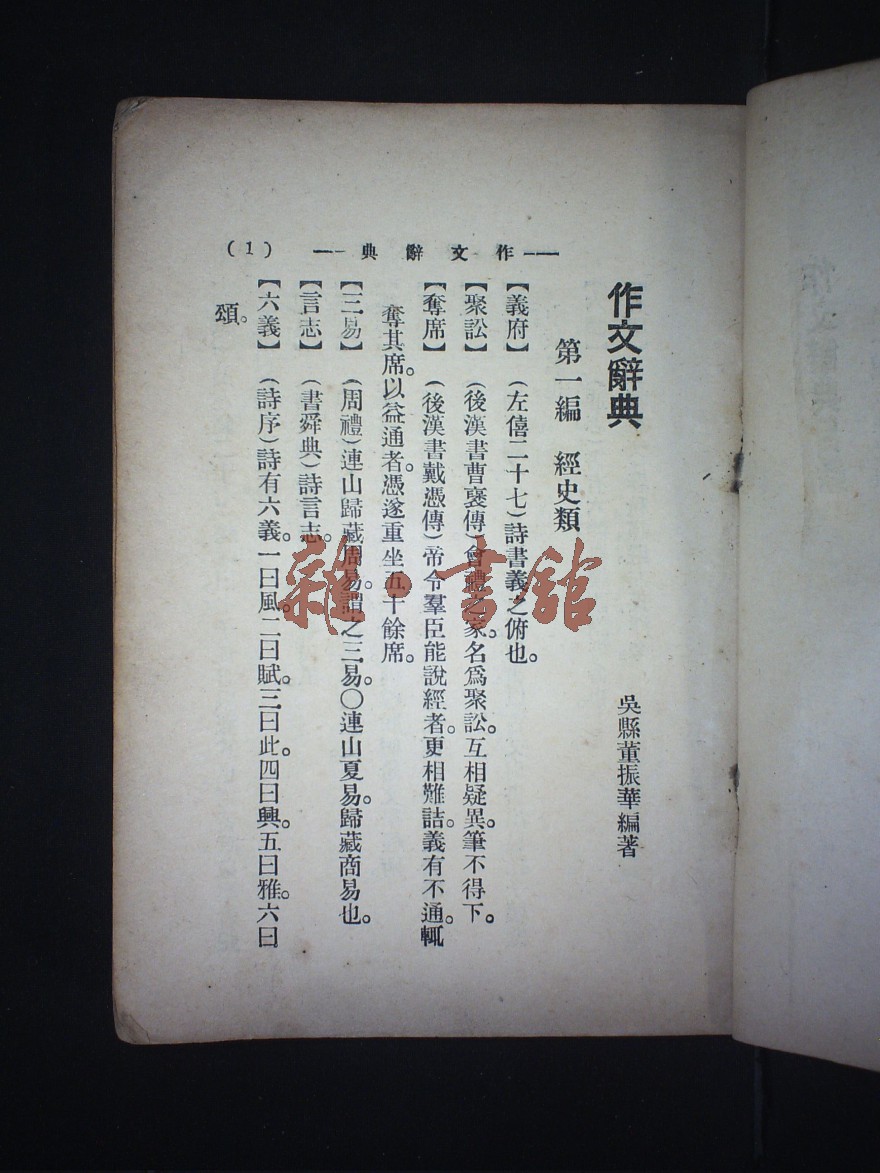 (1) 一 典辭文作 一
作文辭典
吳縣董振華編著
第一編 經史類
【義府】(左僖二十七)詩書義之俯也。
【聚訟】(後漢書曹褒傳)會禮之家。名爲聚訟。互相疑異。筆不得下。
【奪席】(後漢書戴憑傳)帝令羣臣能說經者。更相難詰。義有不通。輒
奪其席。以益通者。憑遂重坐五十餘席。
【三易】(周禮)連山歸藏周易。謂之三易。〇連山夏易。歸藏商易也。
【言志】(書舜典)詩言志。
【六義】(詩序)詩有六義。一曰風。二曰賦。三曰此。四曰興。五曰雅。六曰
頌。
雜·書館